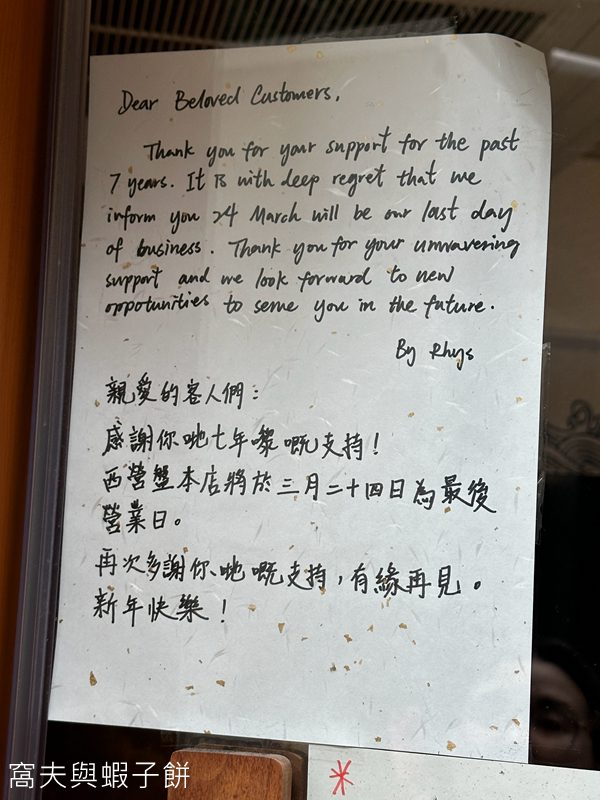 Dear Beloved Customers,
Thank you for your support for the past
7 years. It is with deep regret that we
inform you 24 March will be our last day
of business. Thank you for your unwavering
support and we look forward to new
oppotunities to serve you in the future.
By Rhys
親愛的客人們：
感謝你哋七年嚟嘅支持！
西營盤本店將於三月二十四日為最後
營業日。
再次多謝你哋嘅支持，有緣再見。
新年快樂！
窩夫與蝦子餅